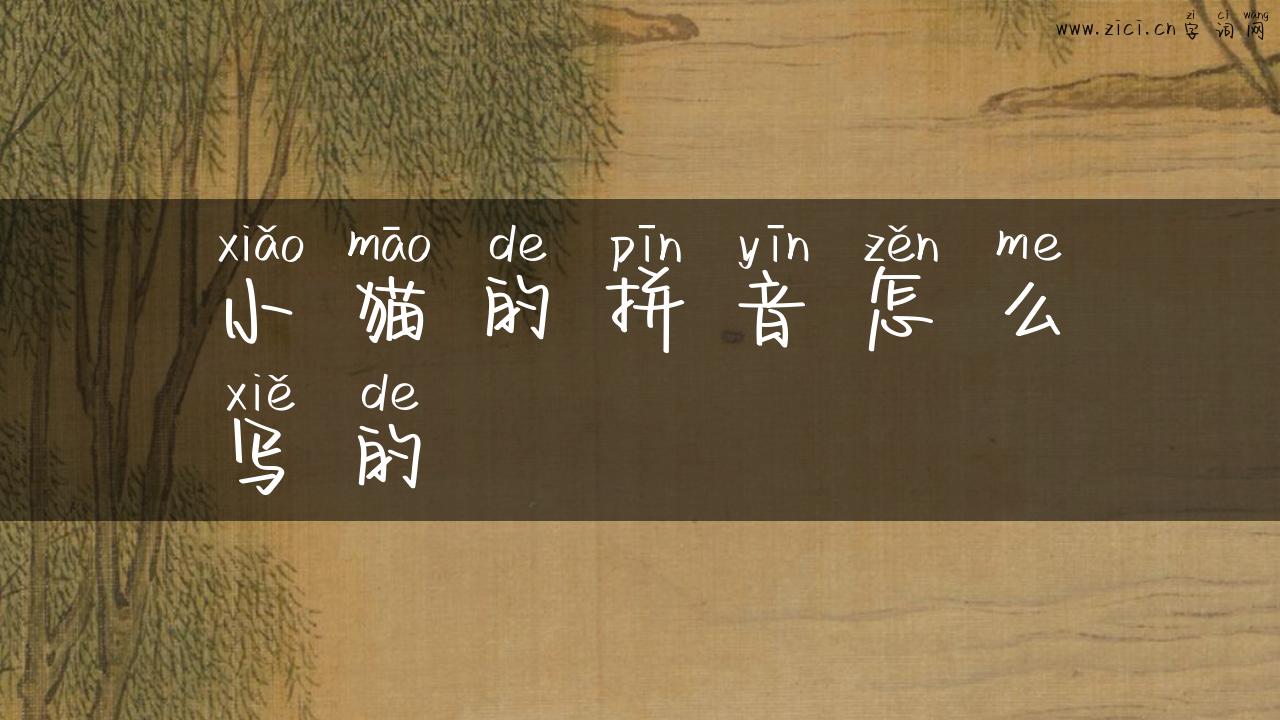 zì cí wǎng
www.zici.cn 字词网
xiǎo māo de pīn yīn zěn me
小猫的拼音怎么
xiě de
写的